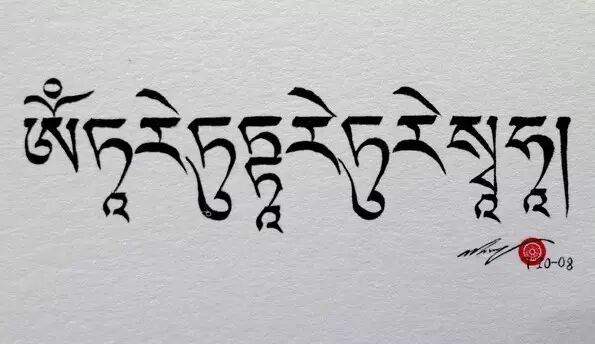 ཨོྃཏཱརེཏུཏྟཱརེཏུརེསྭཱཧཱ།
10-08